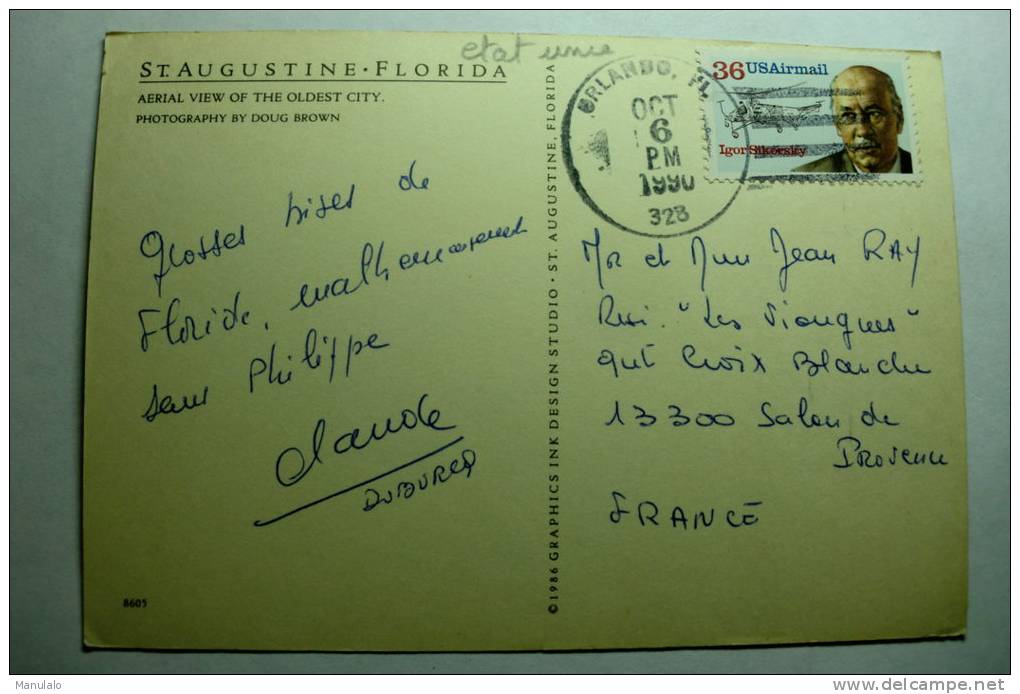 etat unie
ST. AUGUSTINE • FLORIDA
AERIAL VIEW OF THE OLDEST CITY.
PHOTOGRAPHY BY DOUG BROWN
Grosses bises de
Floride, malheureusement
sans Philippe
Claude
DUBOURCQ
8605
© 1986 GRAPHICS INK DESIGN STUDIO • ST. AUGUSTINE, FLORIDA
ORLANDO, FL
OCT
6
PM
1990
328
36 USAirmail
Igor Sikorsky
Mr et Mme Jean RAY
"Les
Croix Blanche
13300 Salon de
Provence
FRANCE
Manulalo
www.delcampe.net